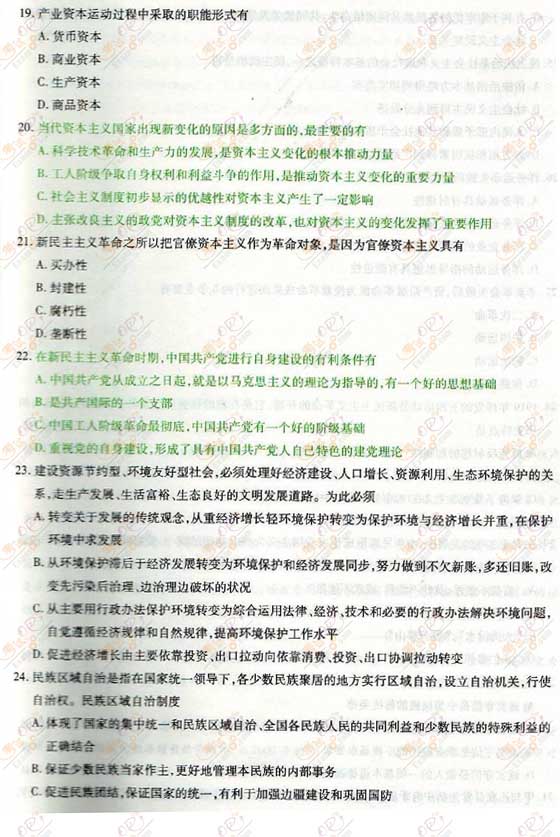 19. 产业资本运动过程中采取的职能形式有
A. 货币资本
B. 商业资本
C. 生产资本
D. 商品资本
20. 当代资本主义国家出现新变化的原因是多方面的,最主要的有
A. 科学技术革命和生产力的发展,是资本主义变化的根本推动力量
B. 工人阶级争取自身权利和利益斗争的作用,是推动资本主义变化的重要力量
C. 社会主义制度初步显示的优越性对资本主义产生了一定影响
D. 主张改良主义的政党对资本主义制度的改革,也对资本主义的变化发挥了重要作用
21. 新民主主义革命之所以把官僚资本主义作为革命对象,是因为官僚资本主义具有
A. 买办性
B. 封建性
C. 腐朽性
D. 垄断性
22. 在新民主主义革命时期,中国共产党进行自身建设的有利条件有
A. 中国共产党从成立之日起,就是以马克思主义的理论为指导的,有一个好的思想基础
B. 是共产国际的一个支部
C. 中国工人阶级革命最彻底,中国共产党有一个好的阶级基础
D. 重视党的自身建设,形成了具有中国共产党人自己特色的建党理论
23. 建设资源节约型、环境友好型社会,必须处理好经济建设、人口增长、资源利用、生态环境保护的关
系,走生产发展、生活富裕、生态良好的文明发展道路。为此必须
A. 转变关于发展的传统观念,从重经济增长轻环境保护转变为保护环境与经济增长并重,在保护
环境中求发展
B. 从环境保护滞后于经济发展转变为环境保护和经济发展同步,努力做到不欠新账,多还旧账,改
变先污染后治理、边治理边破坏的状况
C. 从主要用行政办法保护环境转变为综合运用法律、经济,技术和必要的行政办法解决环境问题,
自觉遵循经济规律和自然规律,提高环境保护工作水平
D. 促进经济增长由主要依靠投资、出口拉动向依靠消费、投资、出口协调拉动转变
24. 民族区域自治是指在国家统一领导下,各少数民族聚居的地方实行区域自治,设立自治机关,行使
自治权。民族区域自治制度
A. 体现了国家的集中统一和民族区域自治、全国各民族人民的共同利益和少数民族的特殊利益的
正确结合
B. 保证少数民族当家作主,更好地管理本民族的内部事务
C. 促进民族团结,保证国家的统一,有利于加强边疆建设和巩固国防